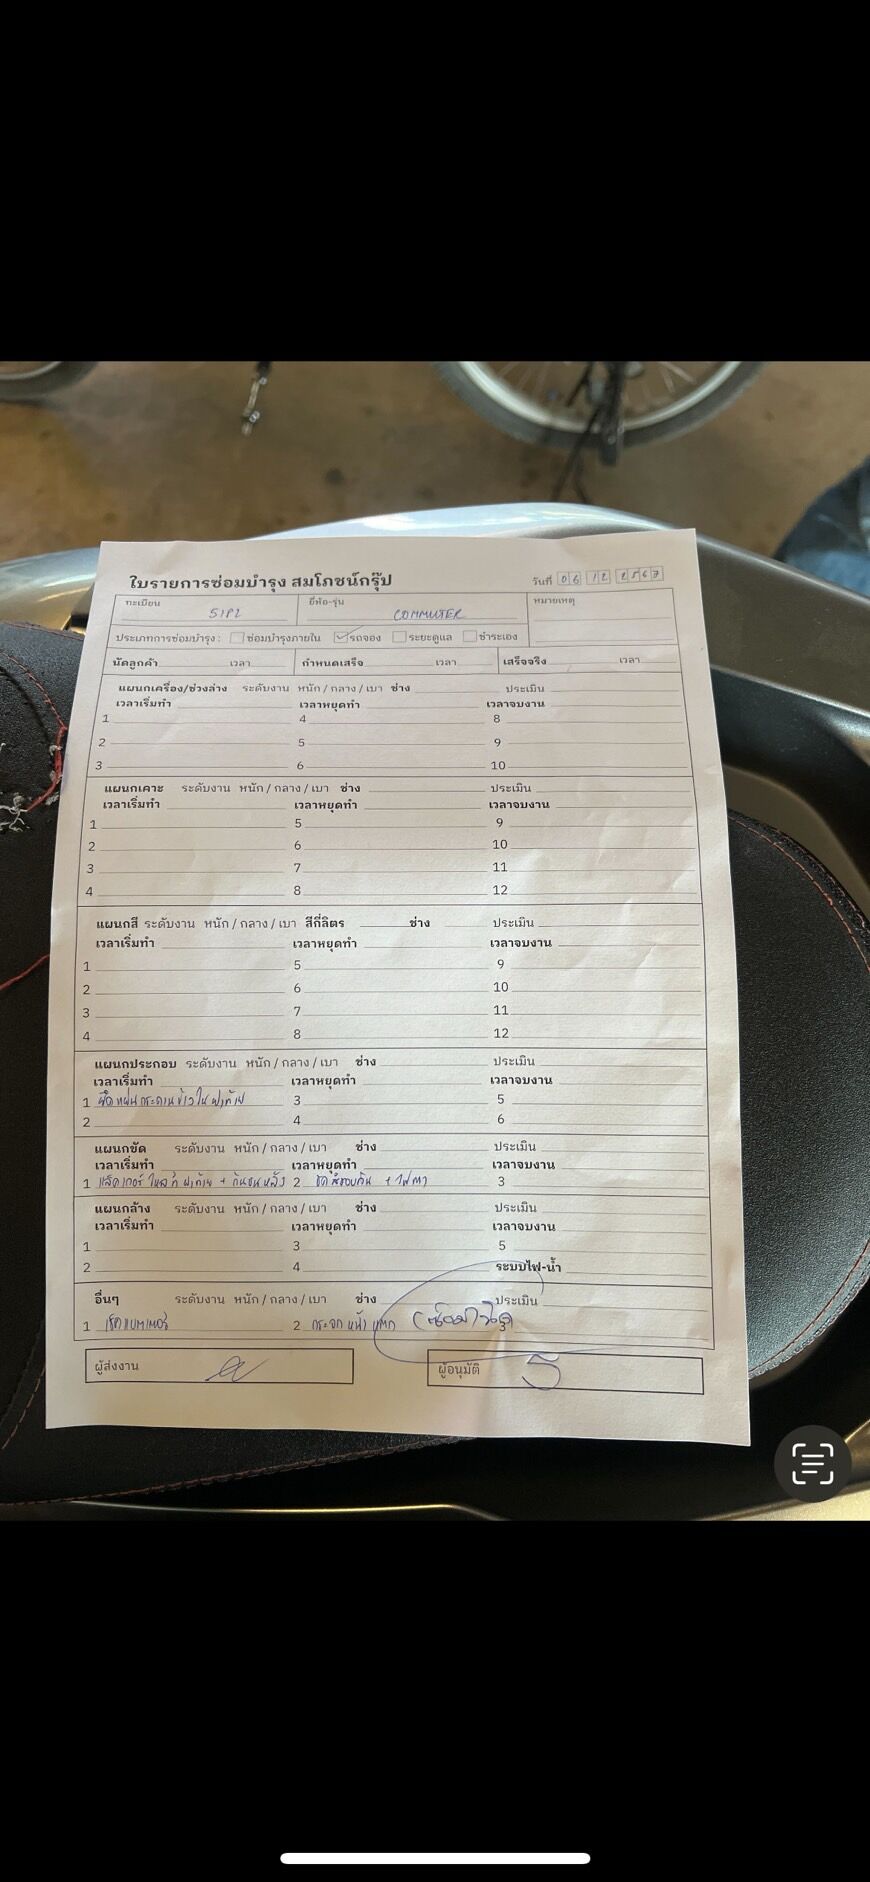 ใบรายการซ่อมบำรุง สมโภชน์กรุ๊ป วันที่ 06 12 2567
ทะเบียน 51P2 ยี่ห้อ-รุ่น COMMUTER หมายเหตุ
ประเภทการซ่อมบำรุง : ซ่อมบำรุงภายใน รถจอง ระยะดูแล ชำระเอง
นัดลูกค้า เวลา กำหนดเสร็จ เวลา เสร็จจริง เวลา
แผนกเครื่อง/ช่วงล่าง ระดับงาน หนัก / กลาง / เบา ช่าง ประเมิน
เวลาเริ่มทำ เวลาหยุดทำ เวลาจบงาน
1 4 8
2 5 9
3 6 10
แผนกเคาะ ระดับงาน หนัก / กลาง / เบา ช่าง ประเมิน
เวลาเริ่มทำ เวลาหยุดทำ เวลาจบงาน
1 5 9
2 6 10
3 7 11
4 8 12
แผนกสี ระดับงาน หนัก / กลาง / เบา สีกี่ลิตร ช่าง ประเมิน
เวลาเริ่มทำ เวลาหยุดทำ เวลาจบงาน
1 5 9
2 6 10
3 7 11
4 8 12
แผนกประกอบ ระดับงาน หนัก / กลาง / เบา ช่าง ประเมิน
เวลาเริ่มทำ เวลาหยุดทำ เวลาจบงาน
1 3 5
2 4 6
แผนกขัด ระดับงาน หนัก / กลาง / เบา ช่าง ประเมิน
เวลาเริ่มทำ เวลาหยุดทำ เวลาจบงาน
1 แล็คเกอร์ไหลที่ฝาท้าย + กันชนหลัง 2 ขัดสีรอบคัน + ไฟตา 3
แผนกล้าง ระดับงาน หนัก / กลาง / เบา ช่าง ประเมิน
เวลาเริ่มทำ เวลาหยุดทำ เวลาจบงาน
1 3 5
2 4 ระบบไฟ-น้ำ
อื่นๆ ระดับงาน หนัก / กลาง / เบา ช่าง ประเมิน
1 เช็คแบตเตอรี่ 2 กระจกหน้าแตก 3
ผู้ส่งงาน ผู้อนุมัติ